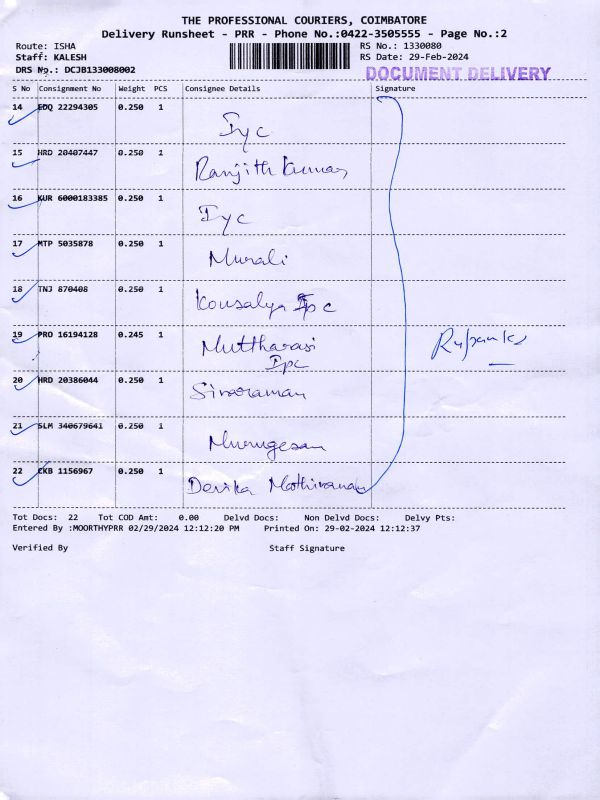 THE PROFESSIONAL COURIERS, COIMBATORE
Delivery Runsheet - PRR - Phone No.:0422-3505555 - Page No.:2
Route: ISHA RS No.: 1330080
Staff: KALESH RS Date: 29-Feb-2024
DRS No.: DCJB133008002 DOCUMENT DELIVERY
S No Consignment No Weight PCS Consignee Details Signature
14 EDQ 22294305 0.250 1
Iyc
15 HRD 20407447 0.250 1
Ranjith Kumar
16 KUR 6000183385 0.250 1
Iyc
17 MTP 5035878 0.250 1
Murali
18 TNJ 870408 0.250 1
Kousalya Ipc
19 PRO 16194128 0.245 1
Muttharasi
Ipc
20 HRD 20386044 0.250 1
Sivaraman
21 SLM 340679641 0.250 1
Murugesan
22 EKB 1156967 0.250 1
Devika Mathivanan
Tot Docs: 22 Tot COD Amt: 0.00 Delvd Docs: Non Delvd Docs: Delvy Pts:
Entered By :MOORTHYPRR 02/29/2024 12:12:20 PM Printed On: 29-02-2024 12:12:37
Verified By Staff Signature